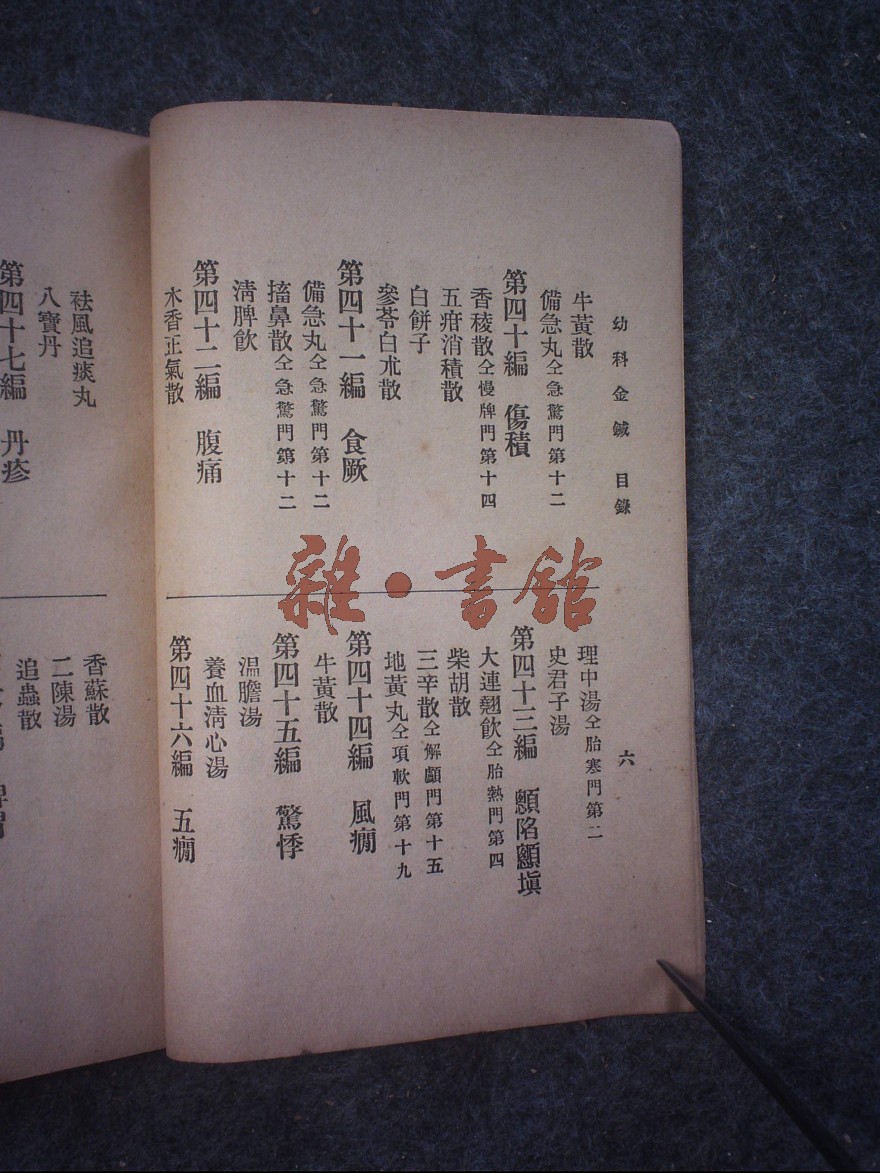 幼科金鍼 目錄
六
牛黃散
備急丸仝急驚門第十二
第四十編 傷積
香稜散仝慢牌門第十四
五疳消積散
白餅子
參苓白朮散
第四十一編 食厥
備急丸仝急驚門第十二
搐鼻散仝急驚門第十二
清脾飲
第四十二編 腹痛
木香正氣散
理中湯仝胎寒門第二
史君子湯
第四十三編 顖陷顖塡
大連翹飲仝胎熱門第四
柴胡散
三辛散仝解顱門第十五
地黃丸仝項軟門第十九
第四十四編 風癇
牛黃散
第四十五編 驚悸
温膽湯
養血淸心湯
第四十六編 五癇
祛風追痰丸
八寶丹
第四十七編 丹疹
香蘇散
二陳湯
追蟲散
雜·書館